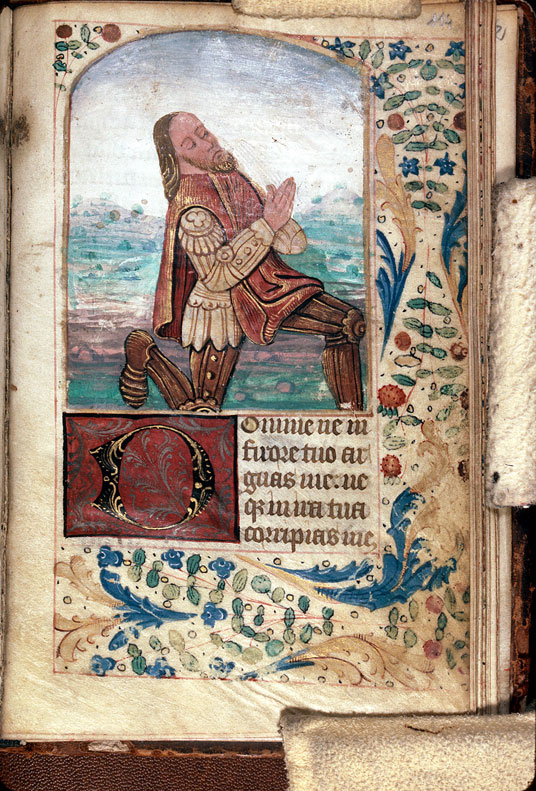 Domine ne in
furore tuo ar
guas me: ne
qz in ira tua
corripias me